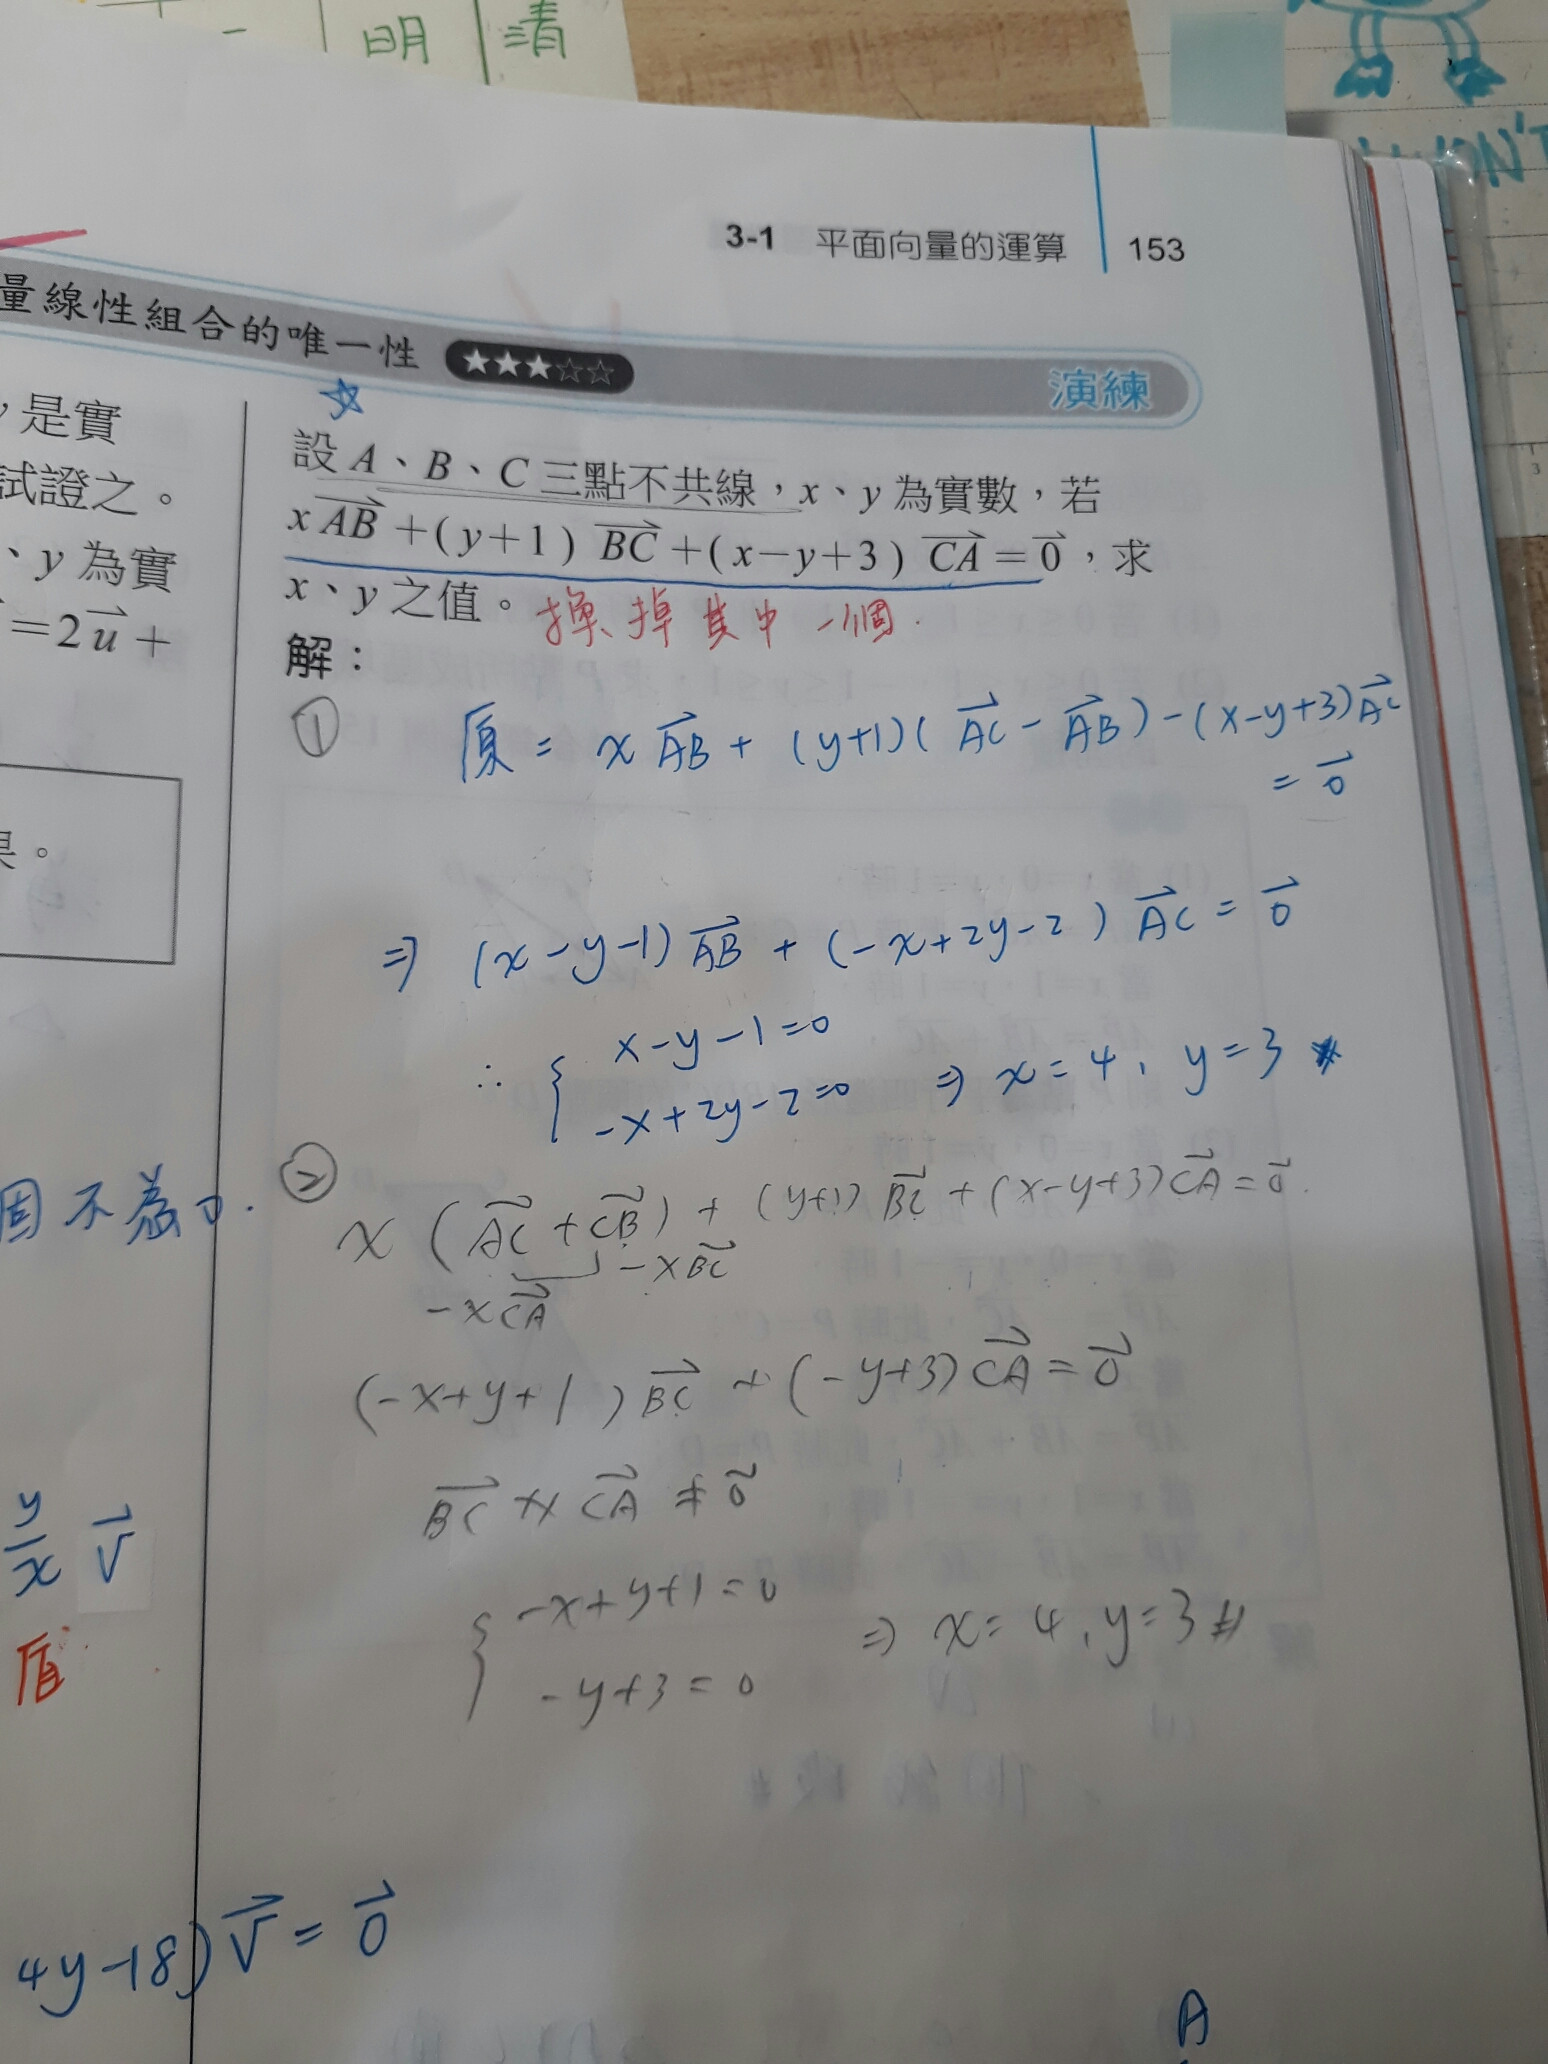 明 清
3-1 平面向量的運算 153
量線性組合的唯一性 ★★★☆☆ 演練
，是實
試證之。
、y 為實
=2u⃗+
果。
設 A、B、C 三點不共線，x、y 為實數，若
xAB⃗+(y+1)BC⃗+(x−y+3)CA⃗=0⃗，求
x、y 之值。 換掉其中一個.
解：
① 原 = xAB⃗ + (y+1)(AC⃗ - AB⃗) - (x-y+3)AC⃗
= 0⃗
⇒ (x-y-1)AB⃗ + (-x+2y-2)AC⃗ = 0⃗
∴ { x-y-1=0
-x+2y-2=0 ⇒ x=4, y=3 #
②
x(AC⃗+CB⃗) + (y+1)BC⃗+(x-y+3)CA⃗=0⃗.
-xBC⃗
-xCA⃗
(-x+y+1)BC⃗ + (-y+3)CA⃗=0⃗
BC⃗ ∦ CA⃗ ≠ 0⃗
{ -x+y+1=0
-y+3=0 ⇒ x=4, y=3 #
個不為0.
y/x v⃗
盾
4y-18)v⃗ = 0⃗
A